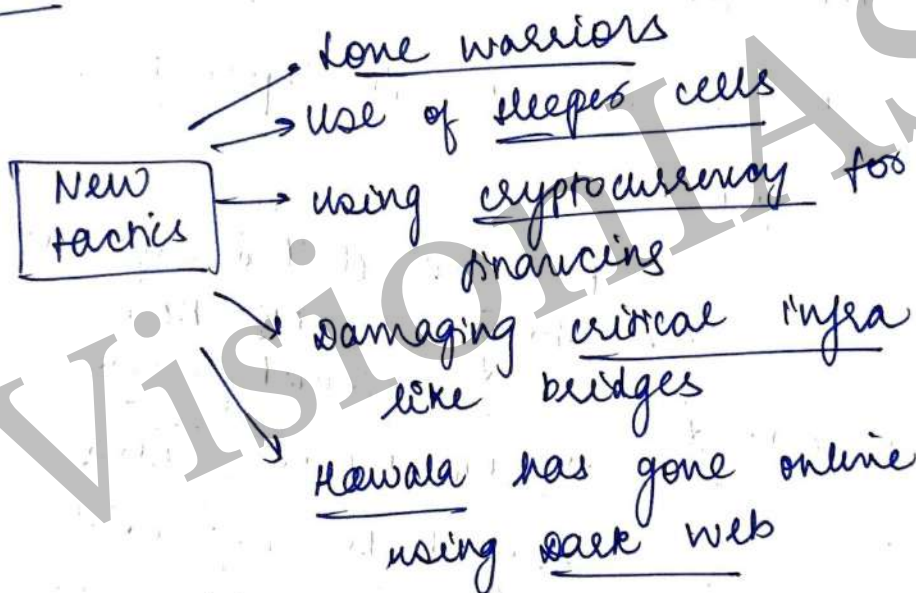 Lone warriors
Use of sleeper cells
New
tactics
using cryptocurrency for
financing
Damaging critical infra
like bridges
Hawala has gone online
using Dark web
VisionIAS